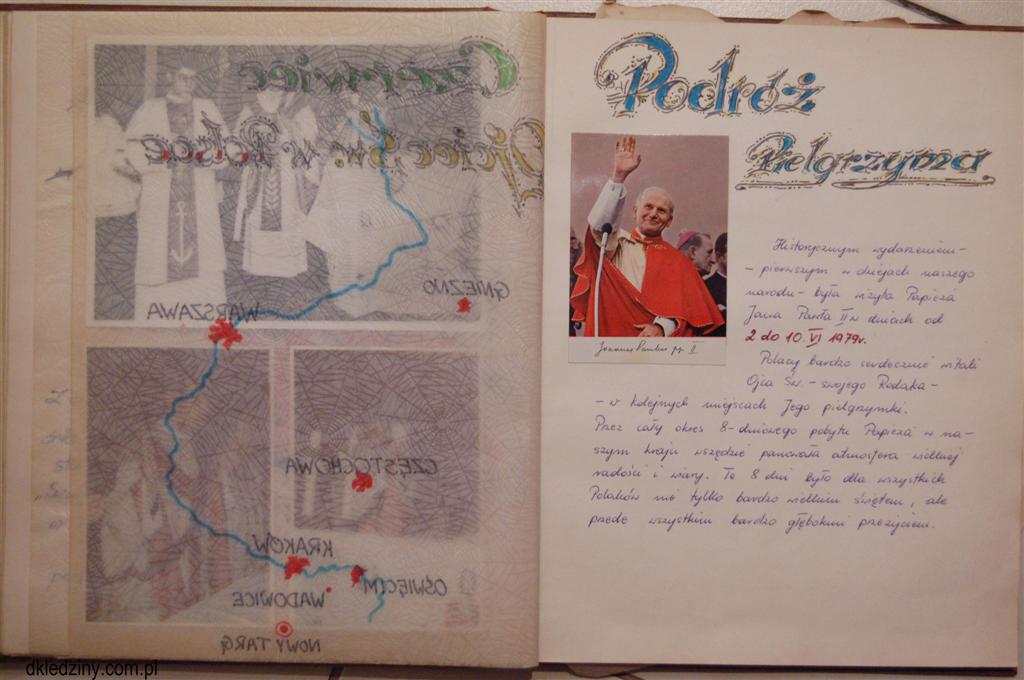 Czerwiec
Ojciec Św. w Polsce
GNIEZNO
WARSZAWA
CZĘSTOCHOWA
KRAKÓW
OŚWIĘCIM
WADOWICE
NOWY TARG
Podróż
Pielgrzyma
Joannes Paulus pp. II
Historycznym wydarzeniem -
- pierwszym w dziejach naszego
narodu - była wizyta Papieża
Jana Pawła II w dniach od
2 do 10. VI 1979r.
Polacy bardzo serdecznie witali
Ojca Św. - swojego Rodaka -
- w kolejnych miejscach Jego pielgrzymki.
Przez cały okres 8-dniowego pobytu Papieża w na-
szym kraju wszędzie panowała atmosfera wielkiej
radości i wiary. Te 8 dni było dla wszystkich
Polaków nie tylko bardzo wielkim świętem, ale
przede wszystkim bardzo głębokim przeżyciem.
dkledziny.com.pl